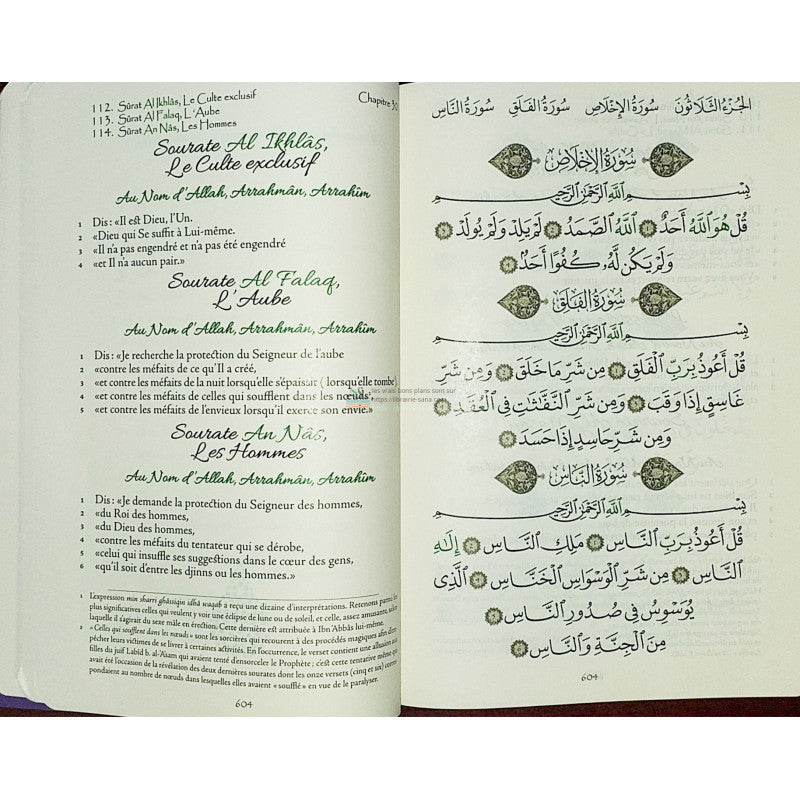 112. Sûrat Al Ikhlâs, Le Culte exclusif
Chapitre 30
113. Sûrat Al Falaq, L'Aube
114. Sûrat An Nâs, Les Hommes
Sourate Al Ikhlâs,
Le Culte exclusif
Au Nom d'Allah, Arrahmân, Arrahîm
1 Dis : «Il est Dieu, l'Un.
2 «Dieu qui Se suffit à Lui-même.
3 «Il n'a pas engendré et n'a pas été engendré
4 «et Il n'a aucun pair.»
Sourate Al Falaq,
L'Aube
Au Nom d'Allah, Arrahmân, Arrahîm
1 Dis : «Je recherche la protection du Seigneur de l'aube
2 «contre les méfaits de ce qu'Il a créé,
3 «et contre les méfaits de la nuit lorsqu'elle s'épaissit ( lorsqu'elle tombe)
4 «et contre les méfaits de celles qui soufflent dans les nœuds²,
5 «et contre les méfaits de l'envieux lorsqu'il exerce son envie.»
les vrais bons plans sont sur
https://librairie-sana.com
Sourate An Nâs,
Les Hommes
Au Nom d'Allah, Arrahmân, Arrahîm
1 Dis : «Je demande la protection du Seigneur des hommes,
2 «du Roi des hommes,
3 «du Dieu des hommes,
4 «contre les méfaits du tentateur qui se dérobe,
5 «celui qui insuffle ses suggestions dans le cœur des gens,
6 «qu'il soit d'entre les djinns ou les hommes.»
1 L'expression min sharri ghâssiqin idhâ waqab a reçu une dizaine d'interprétations. Retenons parmi les
plus significatives celles qui veulent y voir une éclipse de lune ou de soleil, et celle, assez amusante, selon
laquelle il s'agirait du sexe mâle en érection. Cette dernière est attribuée à Ibn 'Abbâs lui-même.
2 «Celles qui soufflent dans les nœuds» sont les sorcières qui recourent à des procédés magiques afin d'em-
pêcher leurs victimes de se livrer à certaines activités. En l'occurrence, le verset contient une allusion aux
filles du juif Labîd b. al-'Asam qui avaient tenté d'ensorceler le Prophète ; c'est cette tentative même qui
avait été l'occasion de la révélation des deux dernières sourates dont les onze versets (cinq et six) corres-
pondaient au nombre de nœuds dans lesquelles elles avaient «soufflé» en vue de le paralyser.
604
الجزء الثلاثون سورة الإخلاص سورة الفلق سورة الناس
سورة الإخلاص
بِسْمِ ٱللَّهِ ٱلرَّحْمَٰنِ ٱلرَّحِيمِ
قُلْ هُوَ ٱللَّهُ أَحَدٌ ١ ٱللَّهُ ٱلصَّمَدُ ٢ لَمْ يَلِدْ وَلَمْ يُولَدْ ٣
وَلَمْ يَكُن لَّهُۥ كُفُوًا أَحَدٌۢ ٤
سورة الفلق
بِسْمِ ٱللَّهِ ٱلرَّحْمَٰنِ ٱلرَّحِيمِ
قُلْ أَعُوذُ بِرَبِّ ٱلْفَلَقِ ١ مِن شَرِّ مَا خَلَقَ ٢ وَمِن شَرِّ
غَاسِقٍ إِذَا وَقَبَ ٣ وَمِن شَرِّ ٱلنَّفَّٰثَٰتِ فِى ٱلْعُقَدِ ٤
وَمِن شَرِّ حَاسِدٍ إِذَا حَسَدَ ٥
سورة الناس
بِسْمِ ٱللَّهِ ٱلرَّحْمَٰنِ ٱلرَّحِيمِ
قُلْ أَعُوذُ بِرَبِّ ٱلنَّاسِ ١ مَلِكِ ٱلنَّاسِ ٢ إِلَٰهِ
ٱلنَّاسِ ٣ مِن شَرِّ ٱلْوَسْوَاسِ ٱلْخَنَّاسِ ٤ ٱلَّذِى
يُوَسْوِسُ فِى صُدُورِ ٱلنَّاسِ ٥
مِنَ ٱلْجِنَّةِ وَٱلنَّاسِ ٦
604